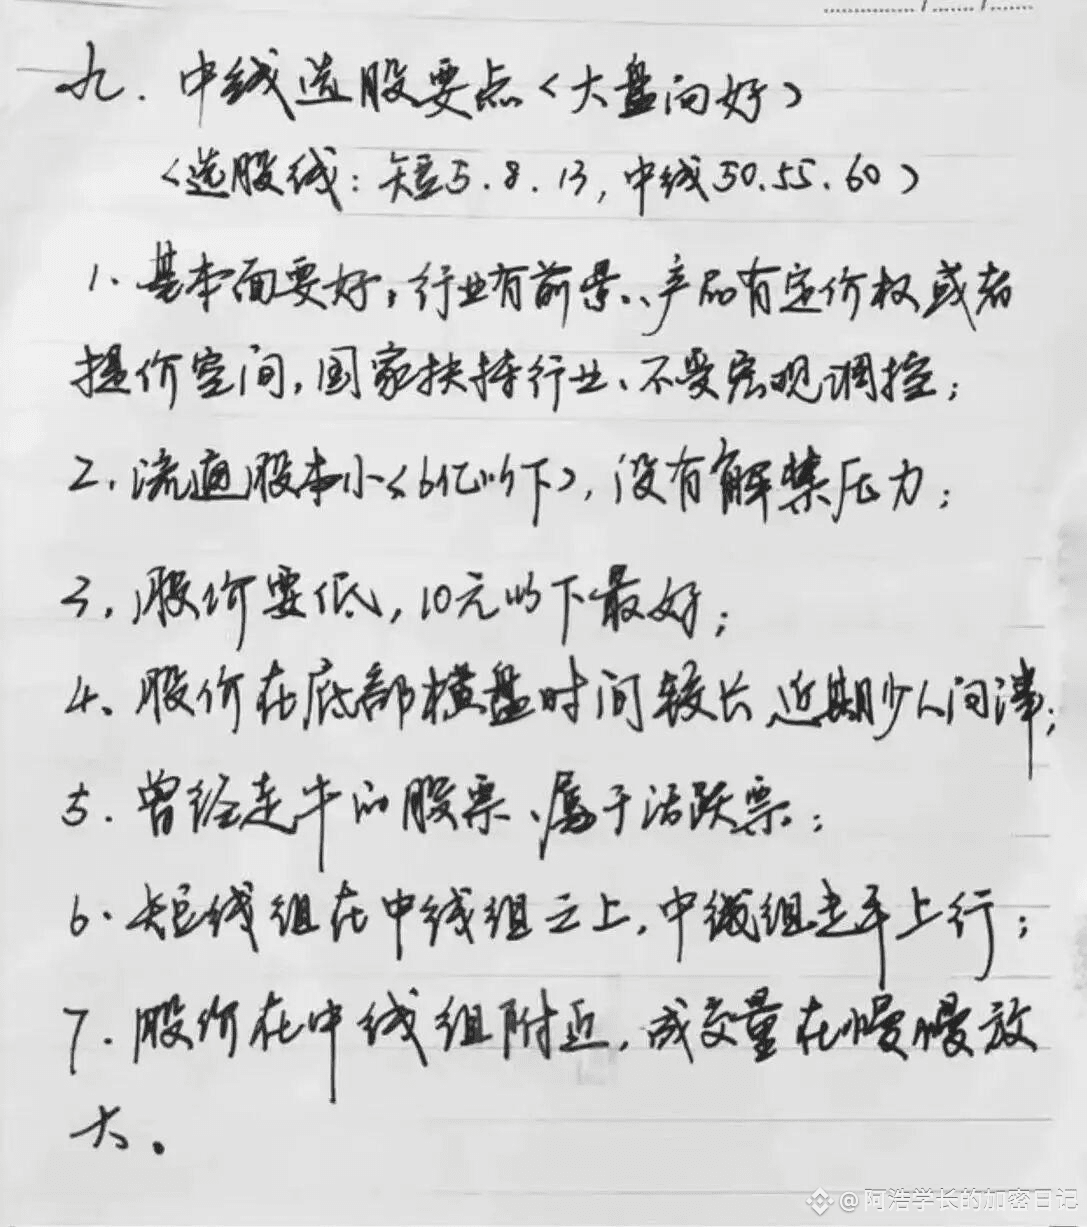 九.中线选股要点<大盘向好>
<选股线:短5.8.13,中线50.55.60>
1、基本面要好,行业有前景、产品有定价权或者
提价空间,国家扶持行业、不受宏观调控;
2、流通股本小<6亿以下>,没有解禁压力;
3,股价要低,10元以下最好;
4、股价在底部横盘时间较长,近期少人问津;
5.曾经走牛的股票、属于活跃票;
6.短线组在中线组之上,中线组走平上行;
7.股价在中线组附近,成交量在慢慢放
大。
@阿浩学长的加密日记